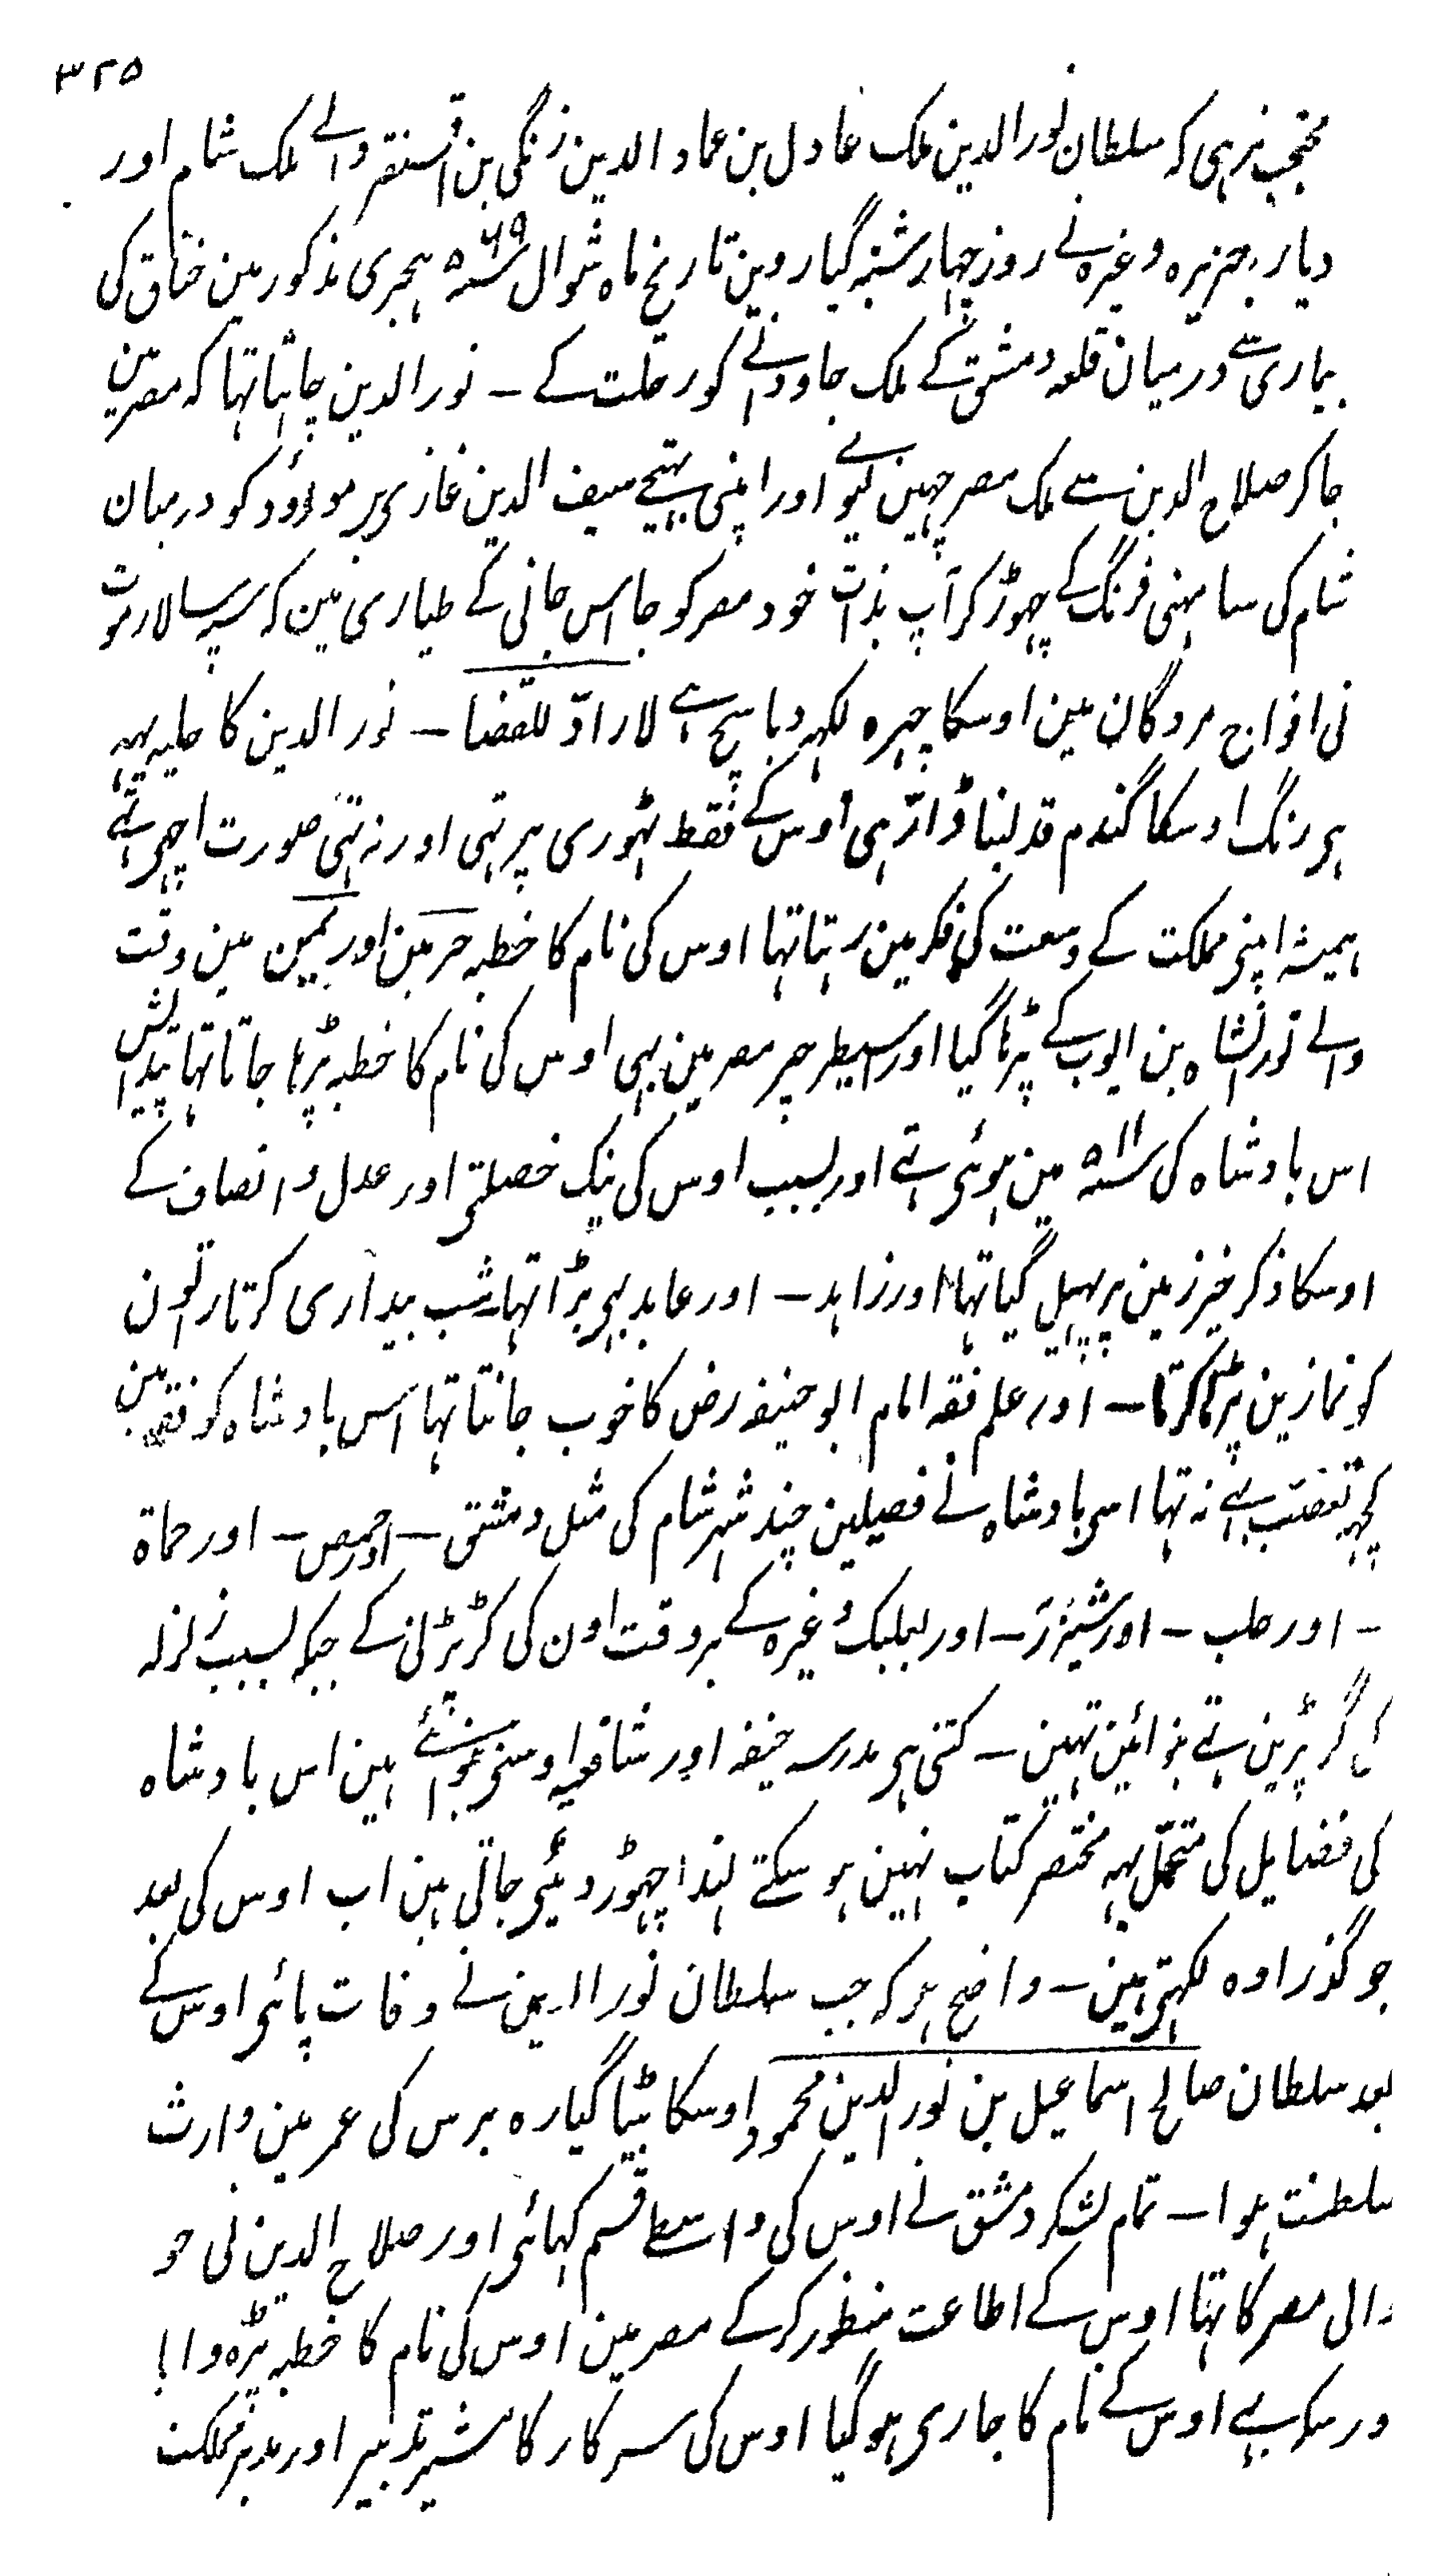 ۳۲۵
محتجب نرہی کہ سلطان نور الدین ملک عادل بن عماد الدین زنگی بن اقسنقر والے ملک شام اور
دیار جزیرہ وغیرہ نے روز چہار شنبہ گیاروین تاریخ ماہ شوال سنہ ۵۶۹ ہجری مذکور مین خناق کی
بیماری سے درمیان قلعہ دمشق کے ملک جاودانے کو رحلت کے ۔ نور الدین چاہتا تہا کہ مصر مین
جا کر صلاح الدین سے ملک مصر چہین لیوے اور اپنی بہتیجے سیف الدین غازی بر مودُود کو درمیان
شام کی سامہنی فرنگ کے چہوڑ کر آپ بذات خود مصر کو جا اس جانی کے طیاری مین کہ سپہ سالار موت
نی افواج مردگان مین اوسکا چہرہ لکہہ دیا سچ ہے لارادّ للقضا ۔ نور الدین کا حلیہ یہہ
ہی رنگ اوسکا گندم قد لنبا ڈاڑہی اوس کے فقط ٹہوری پر تہی اور نہ تہی صورت اچہی تہے
ہمیشہ اپنی مملکت کے وسعت کی فکر مین رہتا تہا اوس کی نام کا خطبہ حرمین اور یمین مین وقت
والے تورانشاہ بن ایوب کے پڑہا گیا اور اسیطرحپر مصر مین بہی اوس کی نام کا خطبہ پڑہا جاتا تہا پیدایش
اس بادشاہ کی سنہ ۵۱۱ مین ہوئی تہے اور بسبب اوس کی نیک خصلتی اور عدل و انصاف کے
اوسکا ذکر خیر زمین پر پہیل گیا تہا اور زاہد ۔ اور عابد بہی بڑا تہا شب بیداری کرتا راتون
کو نمازین پڑہا کرتا ۔ اور علم فقہ امام ابو حنیفہ رض کا خوب جانتا تہا اس بادشاہ کو فقہ مین
کچہہ تعصّب بہے نہ تہا اسی بادشاہ نے فصیلین چند شہر شام کی مثل دمشق ۔ اور حمص ۔ اور حماۃ
۔ اور حلب ۔ اور شَیزَر ۔ اور بعلبک وغیرہ کے بروقت اون کی گڑ پڑنی کے جبکہ بسبب زلزلہ
کی گر پڑین تہے بنوائین تہین ۔ کتنی ہی مدرسہ حنیفہ اور شافعیہ اوسنی بنوائے ہین اس بادشاہ
کی فضایل کی متحمّل یہہ مختصر کتاب نہین ہو سکتے لہذا چہوڑ دیئی جاتی ہین اب اوس کی بعد
جو گذرا وہ لکہتی ہین ۔ واضح ہو کہ جب سلطان نور الدین نے وفات پائی اوس کے
بعد سلطان صالح اسماعیل بن نور الدین محمود اوسکا بیٹا گیارہ برس کی عمر مین وارث
سلطنت ہوا ۔ تمام لشکر دمشق نے اوس کی واسطے قسم کہائی اور صلاح الدین نی جو
والی مصر کا تہا اوس کے اطاعت منظور کر کے مصر مین اوس کی نام کا خطبہ پڑہوایا
ور سکہ بہے اوس کے نام کا جاری ہو گیا اوس کی سرکار کا مشیر تدبیر اور مدبر مملکت